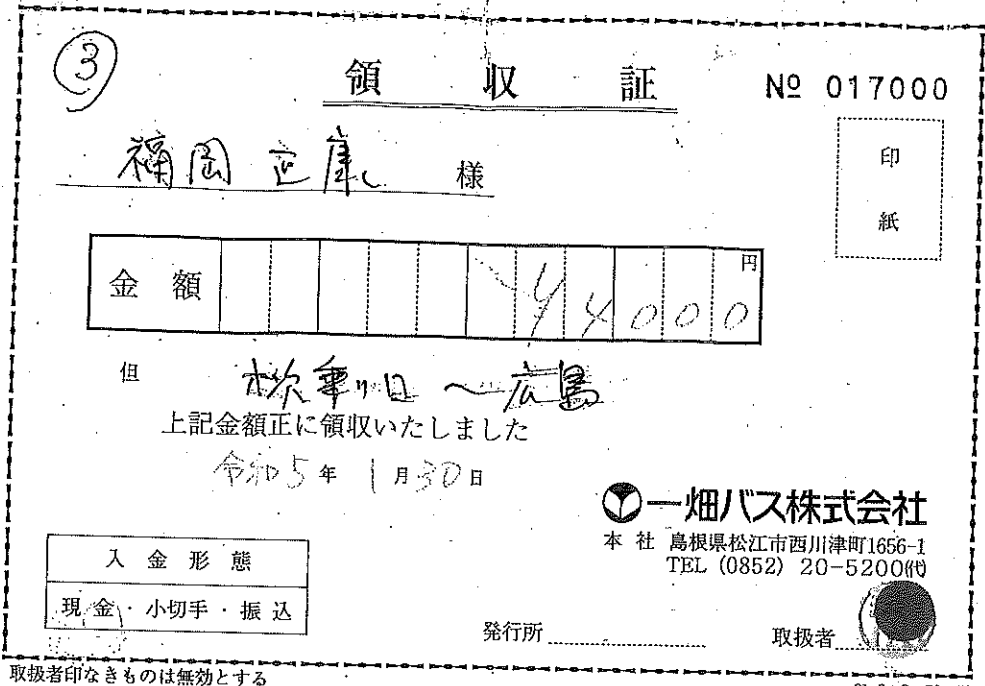 ③
領収証
№ 017000
福岡 様
印紙
金額 ¥4000円
但 広島
上記金額正に領収いたしました
令和5年1月30日
一畑バス株式会社
本社 島根県松江市西川津町1656-1
TEL (0852) 20-5200㈹
入金形態
現金・小切手・振込
発行所
取扱者
取扱者印なきものは無効とする